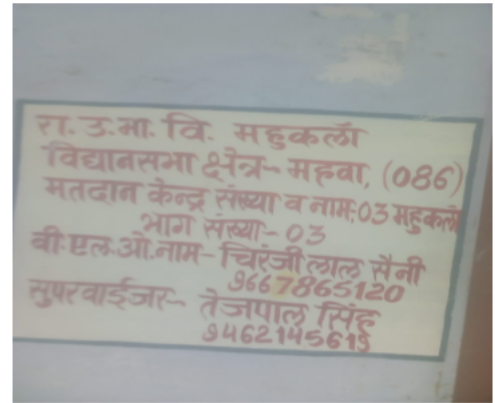 रा. उ. मा. वि. महुकलाॅ
विद्यानसभा क्षेत्र- महवा, (086)
मतदान केन्द्र संख्या व नाम:03 महुकलाॅ
भाग संख्या- 03
बी.एल.ओ.नाम- चिरंजी लाल सैनी
9667865120
सुपरवाईजर- तेजपाल सिंह
9462145619